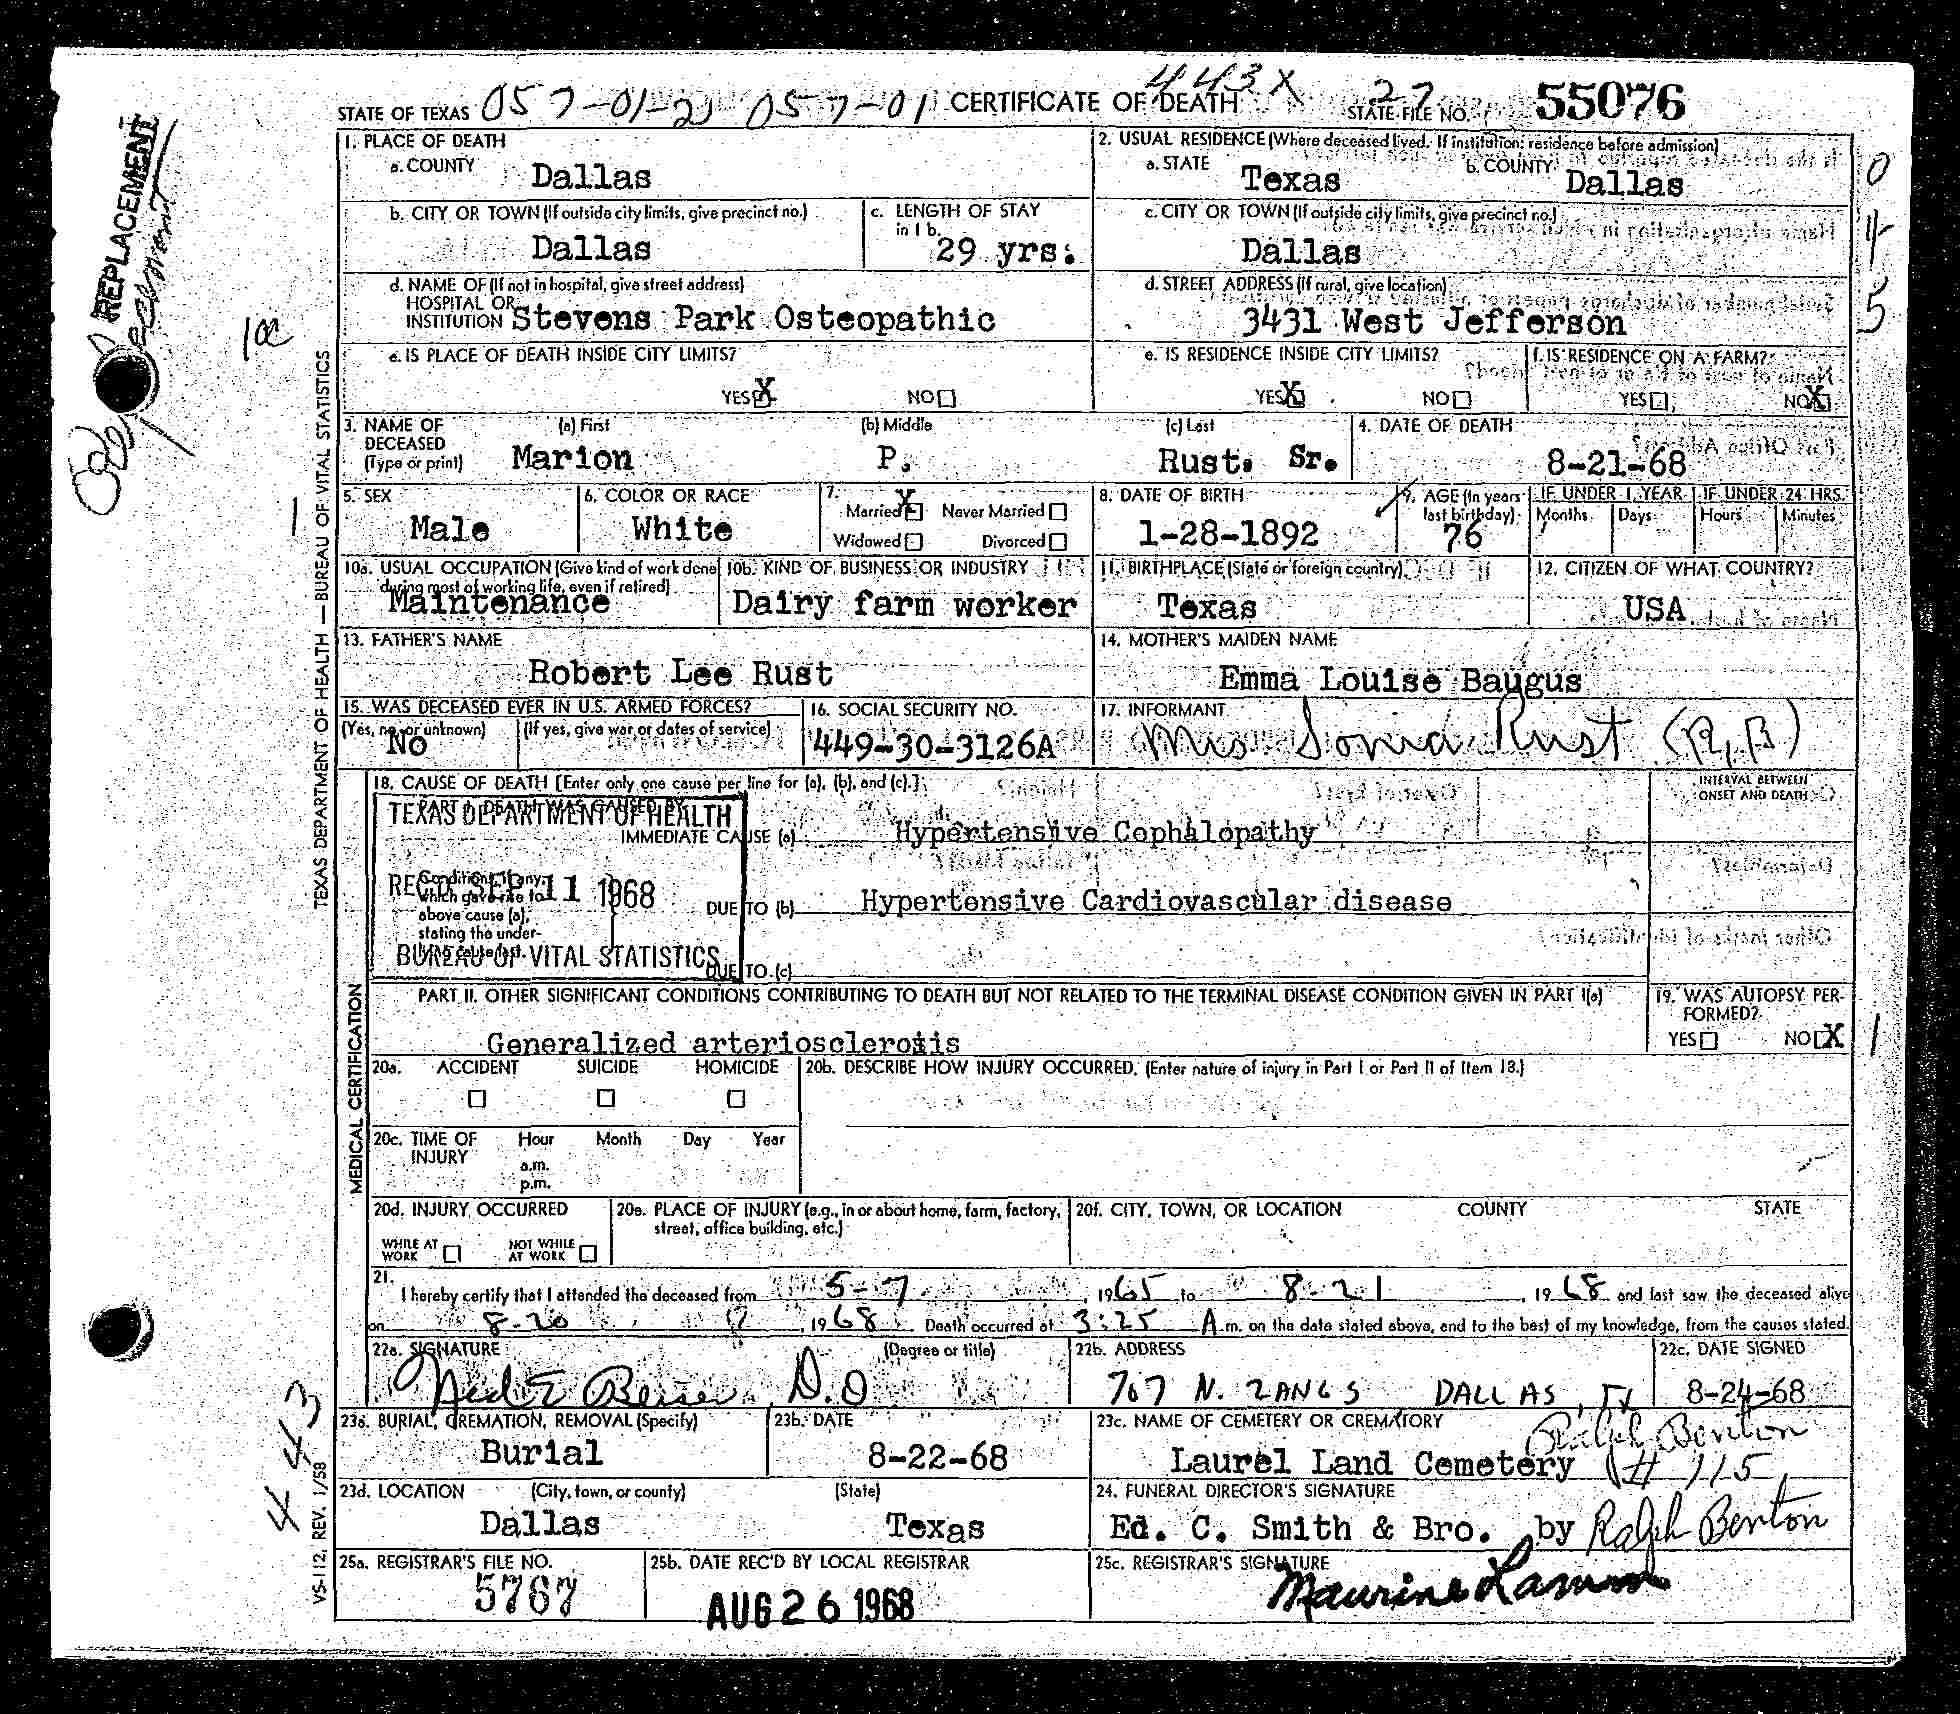 443X
STATE OF TEXAS 057-01-21 057-01 CERTIFICATE OF DEATH 27 STATE FILE NO. 55076
REPLACEMENT
1. PLACE OF DEATH
a. COUNTY Dallas
2. USUAL RESIDENCE (Where deceased lived. If institution: residence before admission)
a. STATE Texas b. COUNTY Dallas
0
b. CITY OR TOWN (If outside city limits, give precinct no.) Dallas
c. LENGTH OF STAY in 1 b. 29 yrs.
c. CITY OR TOWN (If outside city limits, give precinct no.) Dallas
d. NAME OF (If not in hospital, give street address)
HOSPITAL OR
INSTITUTION Stevens Park Osteopathic
d. STREET ADDRESS (If rural, give location)
3431 West Jefferson
5
e. IS PLACE OF DEATH INSIDE CITY LIMITS?
YES X NO
e. IS RESIDENCE INSIDE CITY LIMITS?
YES X NO
f. IS RESIDENCE ON A FARM?
YES NO X
3. NAME OF DECEASED (Type or print)
(a) First Marion (b) Middle P. (c) Last Rust. Sr.
4. DATE OF DEATH 8-21-68
5. SEX Male
6. COLOR OR RACE White
7. Married X Never Married
Widowed Divorced
8. DATE OF BIRTH 1-28-1892
9. AGE (In years last birthday) 76
IF UNDER 1 YEAR Months Days
IF UNDER 24 HRS. Hours Minutes
10a. USUAL OCCUPATION (Give kind of work done during most of working life, even if retired) Maintenance
10b. KIND OF BUSINESS OR INDUSTRY Dairy farm worker
11. BIRTHPLACE (State or foreign country) Texas
12. CITIZEN OF WHAT COUNTRY? USA
13. FATHER'S NAME Robert Lee Rust
14. MOTHER'S MAIDEN NAME Emma Louise Baugus
15. WAS DECEASED EVER IN U.S. ARMED FORCES?
(Yes, no, or unknown) No (If yes, give war or dates of service)
16. SOCIAL SECURITY NO. 449-30-3126A
17. INFORMANT Mrs Sonia Rust (R,B)
TEXAS DEPARTMENT OF HEALTH — BUREAU OF VITAL STATISTICS
MEDICAL CERTIFICATION
18. CAUSE OF DEATH [Enter only one cause per line for (a), (b), and (c).]
INTERVAL BETWEEN ONSET AND DEATH
PART I. DEATH WAS CAUSED BY:
TEXAS DEPARTMENT OF HEALTH
IMMEDIATE CAUSE (a) Hypertensive Cephalopathy
REC'D SEP 11 1968
Conditions, if any, which gave rise to above cause (a), stating the under-
DUE TO (b) Hypertensive Cardiovascular disease
BUREAU OF VITAL STATISTICS
DUE TO (c)
PART II. OTHER SIGNIFICANT CONDITIONS CONTRIBUTING TO DEATH BUT NOT RELATED TO THE TERMINAL DISEASE CONDITION GIVEN IN PART I(a)
Generalized arteriosclerosis
19. WAS AUTOPSY PERFORMED?
YES NO X
1
20a. ACCIDENT SUICIDE HOMICIDE
20b. DESCRIBE HOW INJURY OCCURRED. (Enter nature of injury in Part I or Part II of Item 18.)
20c. TIME OF INJURY Hour Month Day Year
a.m.
p.m.
20d. INJURY OCCURRED
WHILE AT WORK NOT WHILE AT WORK
20e. PLACE OF INJURY (e.g., in or about home, farm, factory, street, office building, etc.)
20f. CITY, TOWN, OR LOCATION COUNTY STATE
21.
I hereby certify that I attended the deceased from 5-7, 1965 to 8-21, 1968 and last saw the deceased alive
on 8-20, 1968. Death occurred at 3:25 A.m. on the date stated above, and to the best of my knowledge, from the causes stated.
22a. SIGNATURE D.O (Degree or title)
22b. ADDRESS 707 N. ZANGS DALLAS, TX
22c. DATE SIGNED 8-24-68
443
23a. BURIAL, CREMATION, REMOVAL (Specify) Burial
23b. DATE 8-22-68
23c. NAME OF CEMETERY OR CREMATORY Laurel Land Cemetery
Ralph Benton
# 115
23d. LOCATION (City, town, or county) Dallas (State) Texas
24. FUNERAL DIRECTOR'S SIGNATURE
Ed. C. Smith & Bro. by Ralph Benton
25a. REGISTRAR'S FILE NO. 5767
25b. DATE REC'D BY LOCAL REGISTRAR AUG 26 1968
25c. REGISTRAR'S SIGNATURE Maurine Lamm
VS-112, REV. 1/58